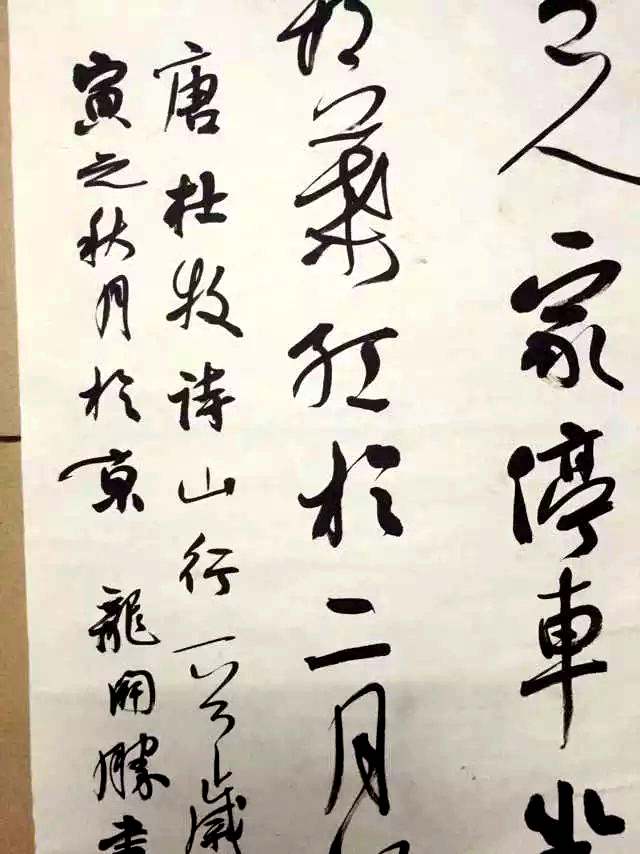 人家停車坐
葉紅於二月
唐杜牧诗山行一首歲
寅之秋月於京 龍開勝書